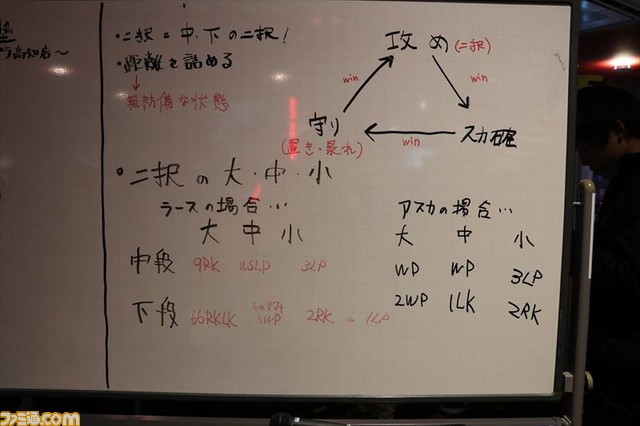 塾
高知店～
・二択=中・下の二択!
・距離を詰める
無防備な状態
攻め(二択)
win
win
守り
(置き・暴れ)
スカ確
win
・二択の大・中・小
ラースの場合…
大 中 小
中段 9RK WSLP 3LP
下段 66RKLK しゃがみ 3WP 2RK 1LP
アスカの場合…
大 中 小
WP WP 3LP
2WP 1LK 2RK
ファミ通.com